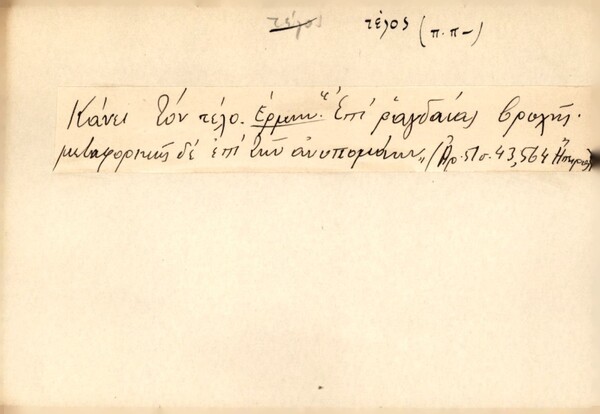 τέλος τέλος (π.π–)
Κάνει τόν τέλο. Ἑρμην. "Ἐπί ραγδαίας βροχῆς·
μεταφορικῶς δέ ἐπί τῶν ἀνυπομόνων„ (Ἀρ. 51 σ. 43, 564 Ἤπειρος)